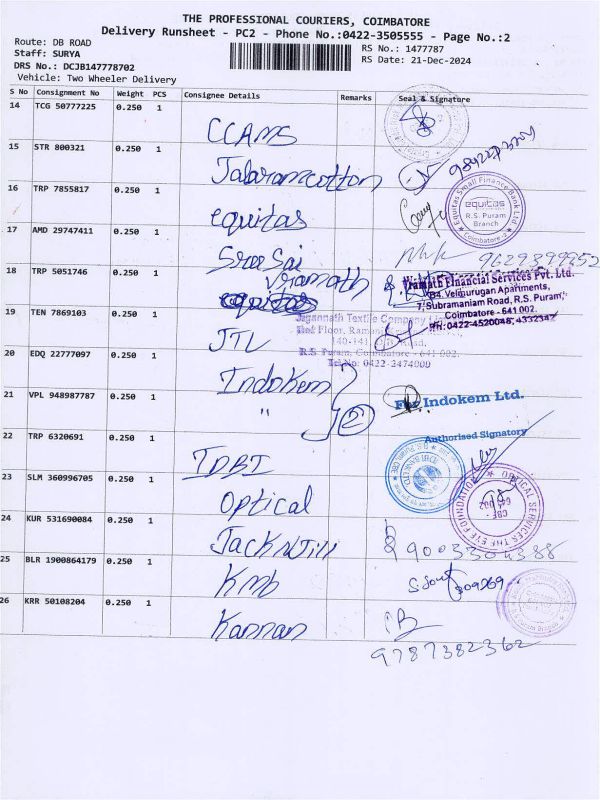 THE PROFESSIONAL COURIERS, COIMBATORE
Delivery Runsheet - PC2 - Phone No.:0422-3505555 - Page No.:2
Route: DB ROAD
Staff: SURYA
DRS No.: DCJB147778702
Vehicle: Two Wheeler Delivery
RS No.: 1477787
RS Date: 21-Dec-2024
S No Consignment No Weight PCS Consignee Details Remarks Seal & Signature
14 TCG 50777225 0.250 1 CCAMS
15 STR 800321 0.250 1 Jalaramcotton
16 TRP 7855817 0.250 1 equitas
Equitas Small Finance Bank Ltd
equitas
R.S. Puram
Branch
Coimbatore
17 AMD 29747411 0.250 1 Sree Sai 9629399952
18 TRP 5051746 0.250 1 Vramath
Vramath Financial Services Pvt. Ltd.
B4, Velmurugan Apartments,
7, Subramaniam Road, R.S. Puram,
Coimbatore - 641 002.
PH: 0422-4520048, 4332347
19 TEN 7869103 0.250 1 JTL
Jagannath Textile Company
R.S. Puram, Coimbatore - 641 002.
Tel No: 0422-2474000
20 EDQ 22777097 0.250 1 Indokem
21 VPL 948987787 0.250 1 " 2
For Indokem Ltd.
Authorised Signatory
22 TRP 6320691 0.250 1 IDBI
23 SLM 360996705 0.250 1 Optical
OPTICAL SERVICES THE EYE FOUNDATION
CBE
641 002
24 KUR 531690084 0.250 1 Jack n Jill
25 BLR 1900864179 0.250 1 Kmb
26 KRR 50108204 0.250 1 Kannan
9787382362